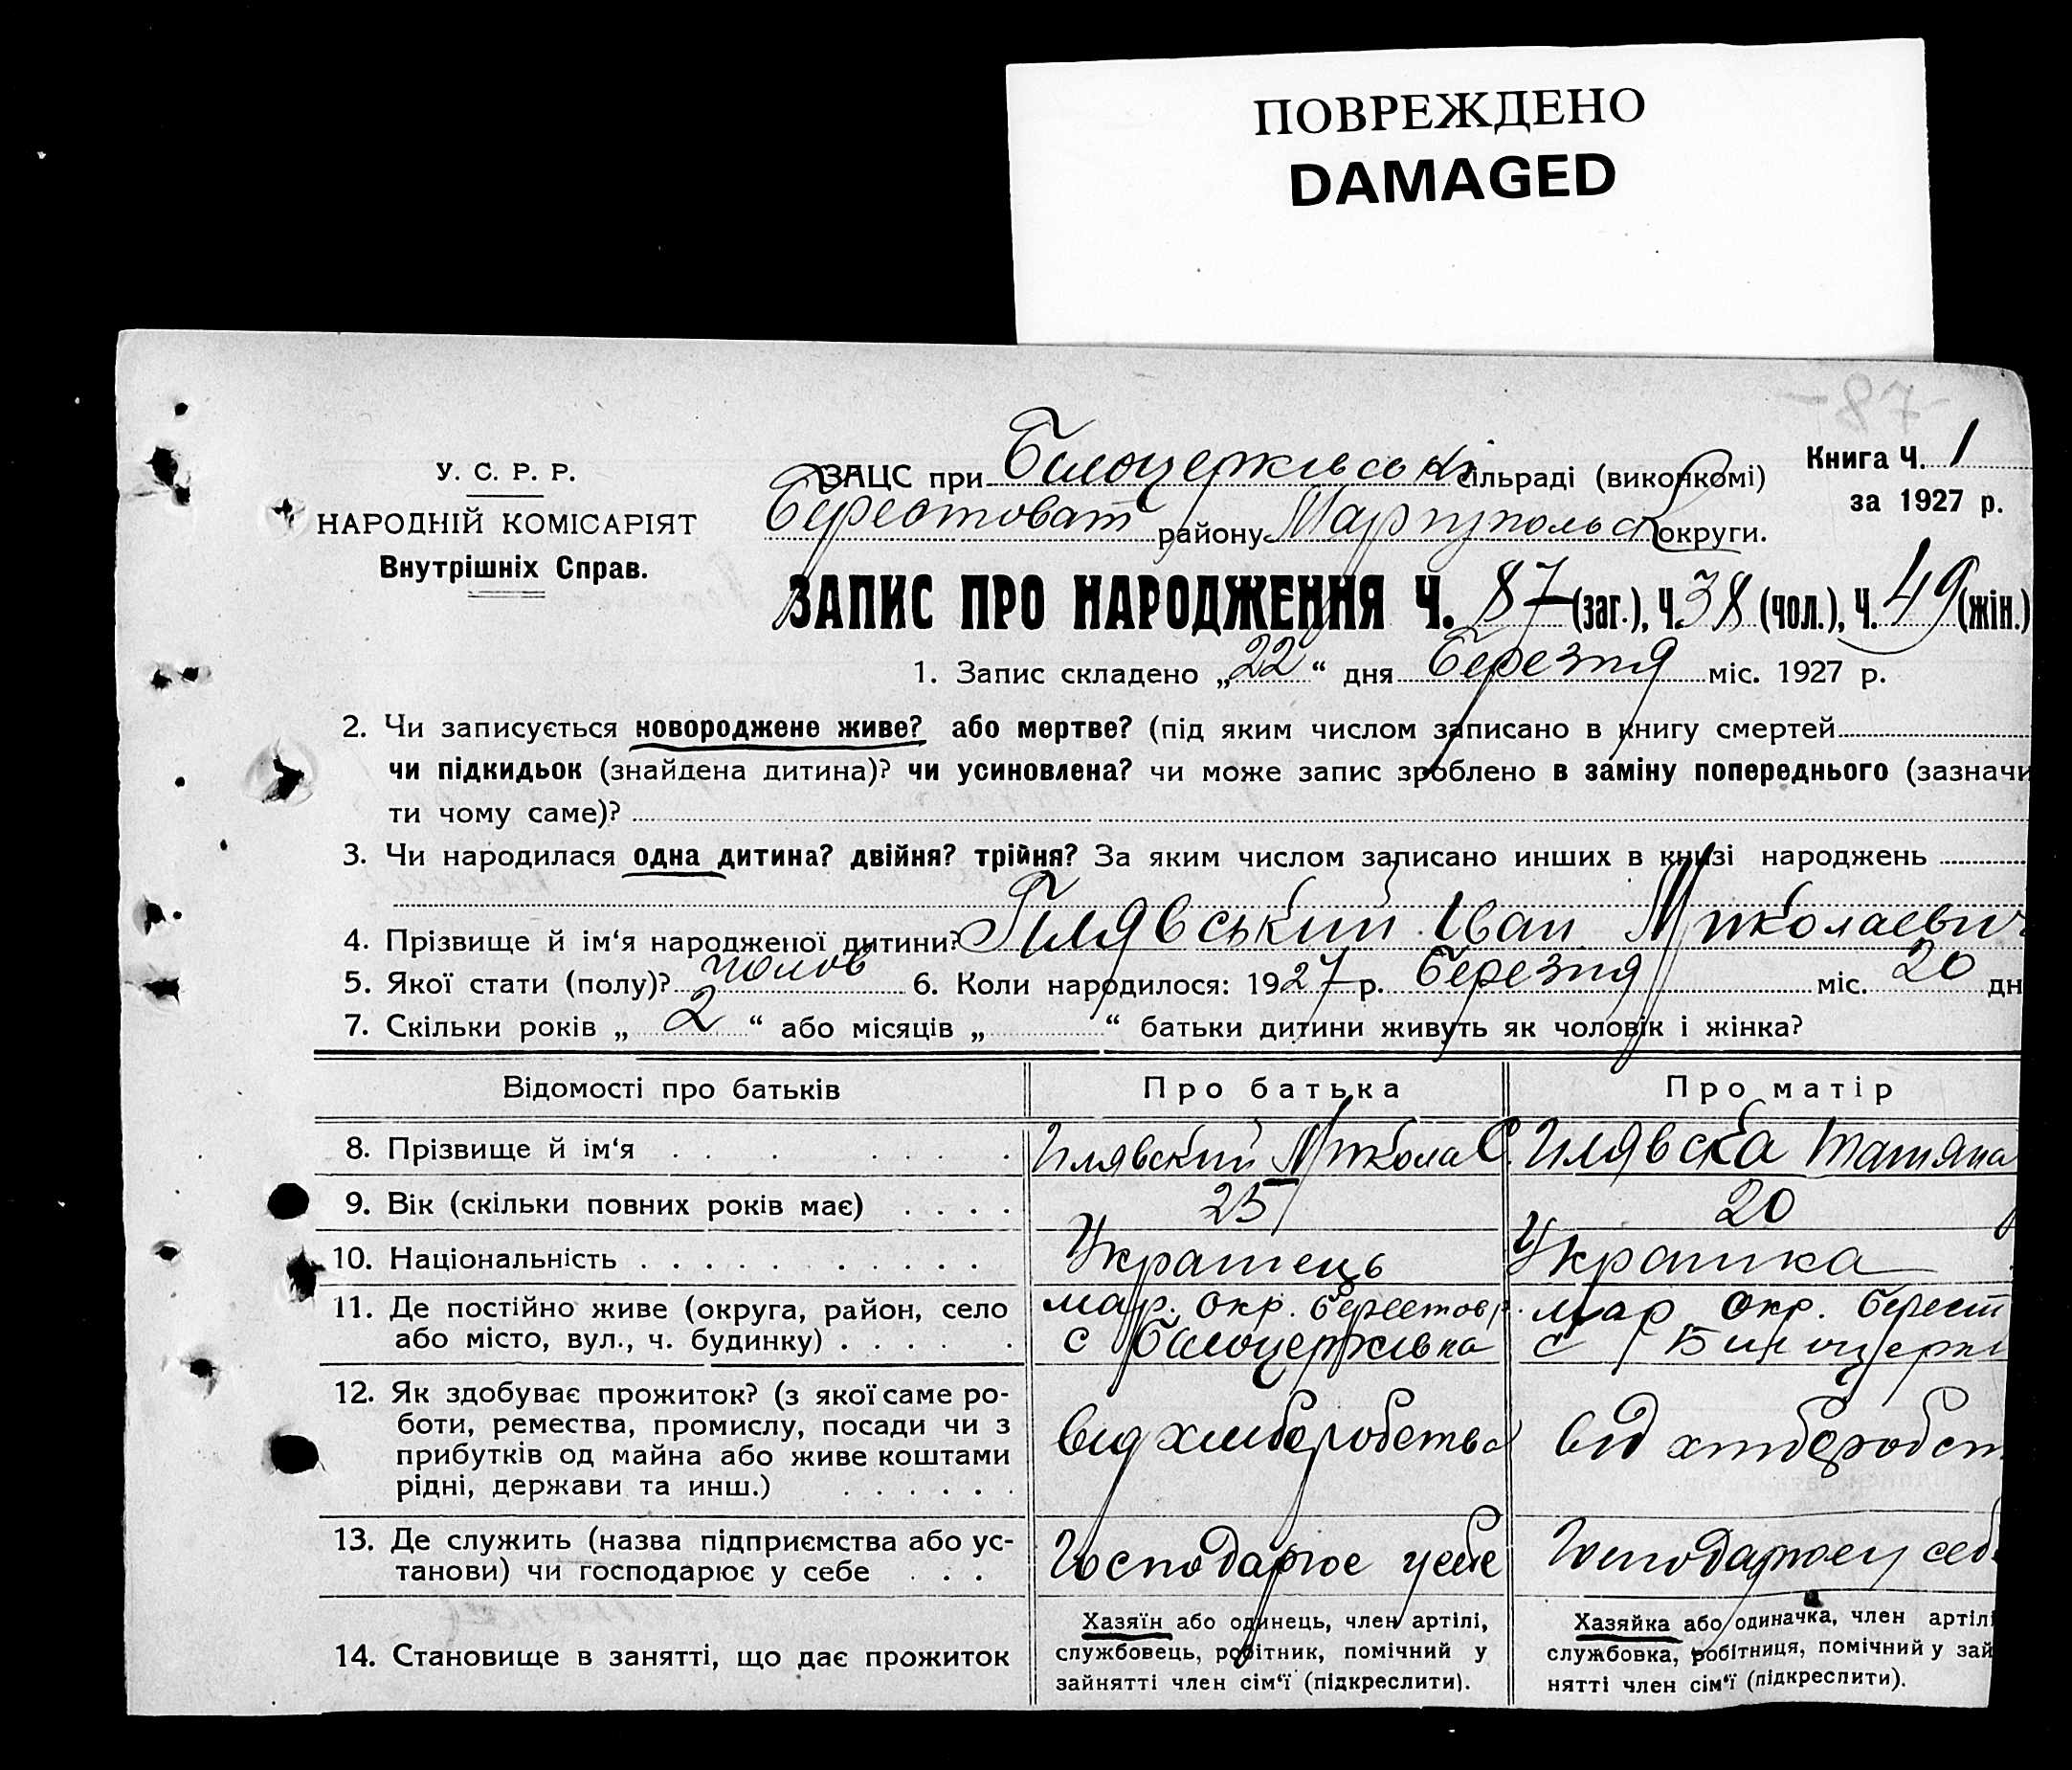 ПОВРЕЖДЕНО
DAMAGED
Книга Ч. 1
за 1927 р.
У. С. Р. Р.
НАРОДНІЙ КОМІСАРІЯТ
Внутрішніх Справ.
ЗАЦС при Білоцерківські сільраді (виконкомі)
Берестоват району Маріупольск округи.
ЗАПИС ПРО НАРОДЖЕННЯ Ч. 87 (заг.), Ч. 38 (чол.), Ч. 49 (жін.)
1. Запис складено „22“ дня березня міс. 1927 р.
2. Чи записується новороджене живе? або мертве? (під яким числом записано в книгу смертей
чи підкидьок (знайдена дитина)? чи усиновлена? чи може запис зроблено в заміну попереднього (зазначи
ти чому саме)?
3. Чи народилася одна дитина? двійня? трійня? За яким числом записано инших в книзі народжень
4. Прізвище й ім‘я народженої дитини? Гилявський Іван Миколаевич
5. Якої стати (полу)? чолов 6. Коли народилося: 1927 р. березня міс. 20 дн
7. Скільки років „ 2 “ або місяців „ “ батьки дитини живуть як чоловік і жінка?
Відомості про батьків Про батька Про матір
8. Прізвище й ім‘я Гилявский Микола С. Гилявска Татяна
9. Вік (скільки повних років має) 25 20
10. Національність Украінець Украінка
11. Де постійно живе (округа, район, село мар. окр. берестов р. мар окр. берест
або місто, вул., ч. будинку) с Білоцерківка с Билоцеркі
12. Як здобуває прожиток? (з якої саме ро-
боти, ремества, промислу, посади чи з від хліборобства від хліборобст
прибутків од майна або живе коштами
рідні, держави та инш.)
13. Де служить (назва підприємства або ус-
танови) чи господарює у себе Господарює у себе Господарює у себе
14. Становище в занятті, що дає прожиток
Хазяїн або одинець, член артілі,
службовець, робітник, помічний у
зайнятті член сім‘ї (підкреслити).
Хазяйка або одиначка, член артілі
службовка, робітниця, помічний у зай
нятті член сім‘ї (підкреслити).